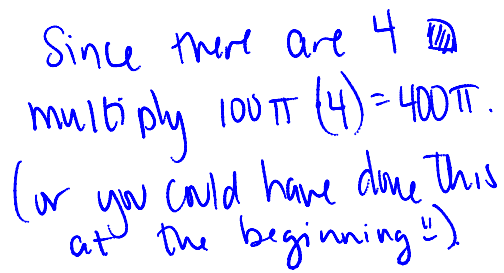 Since there are 4
multiply 100π (4) = 400π.
(or you could have done this
at the beginning!!).